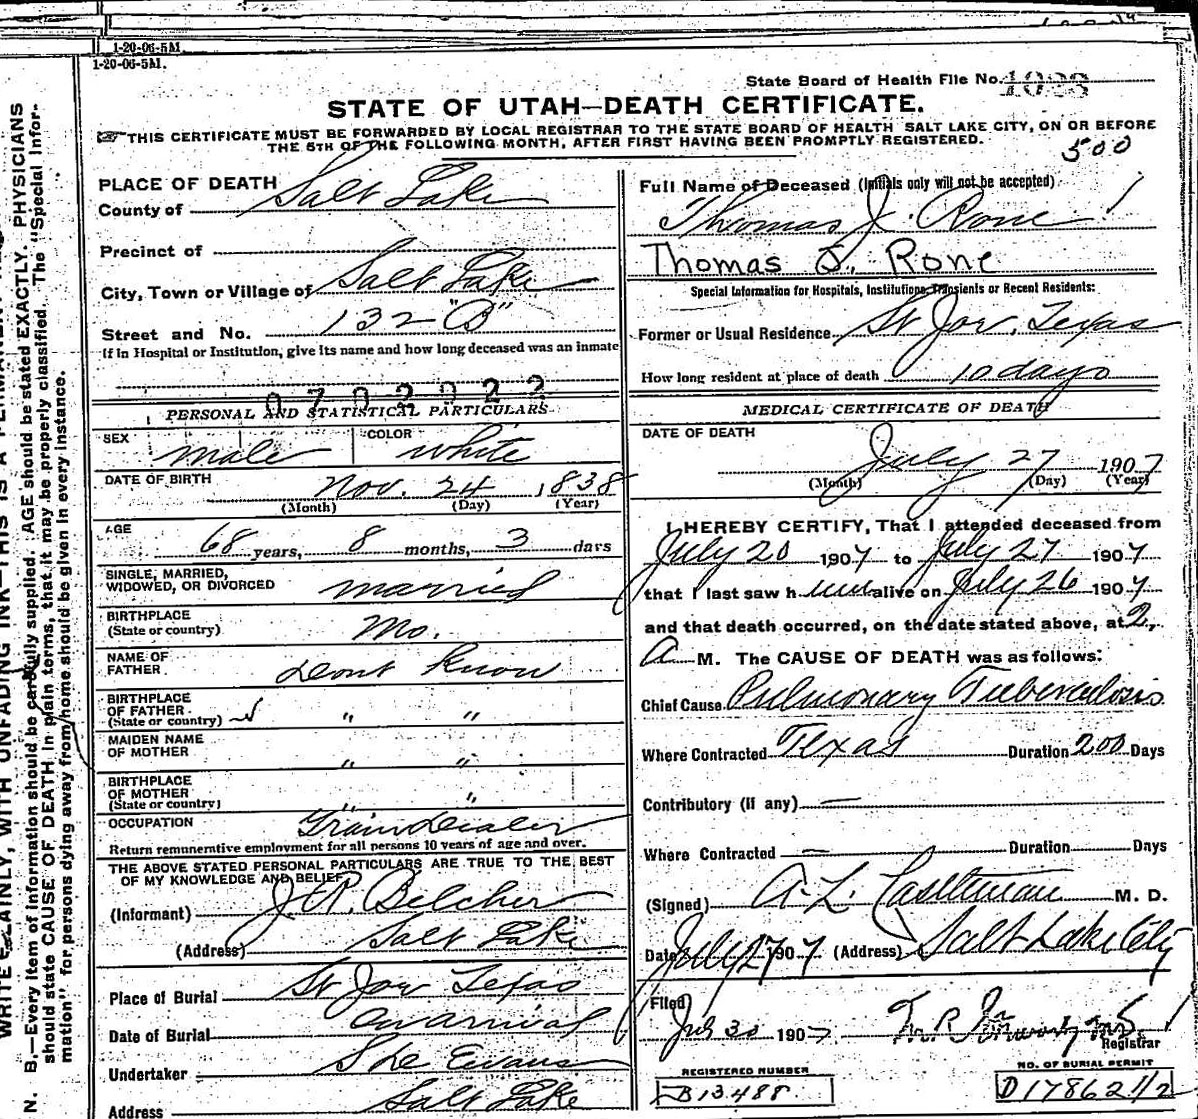 1-20-06-5M
1-20-06-5M.
State Board of Health File No. 1028
STATE OF UTAH—DEATH CERTIFICATE.
THIS CERTIFICATE MUST BE FORWARDED BY LOCAL REGISTRAR TO THE STATE BOARD OF HEALTH SALT LAKE CITY, ON OR BEFORE
THE 5TH OF THE FOLLOWING MONTH, AFTER FIRST HAVING BEEN PROMPTLY REGISTERED.
500
PLACE OF DEATH
County of Salt Lake
Precinct of
City, Town or Village of Salt Lake
Street and No. 132 "B"
If in Hospital or Institution, give its name and how long deceased was an inmate
0702922
PERSONAL AND STATISTICAL PARTICULARS
SEX male COLOR white
DATE OF BIRTH Nov. 24, 1838
(Month) (Day) (Year)
AGE 68 years, 8 months, 3 days
SINGLE, MARRIED,
WIDOWED, OR DIVORCED married
BIRTHPLACE
(State or country) Mo.
NAME OF
FATHER Dont Know
BIRTHPLACE
OF FATHER
(State or country) " "
MAIDEN NAME
OF MOTHER " "
BIRTHPLACE
OF MOTHER
(State or country) " "
OCCUPATION Grain Dealer
Return remunerative employment for all persons 10 years of age and over.
THE ABOVE STATED PERSONAL PARTICULARS ARE TRUE TO THE BEST
OF MY KNOWLEDGE AND BELIEF
(Informant) J. R. Belcher
(Address) Salt Lake
Place of Burial St Jow Texas
Date of Burial on arrival
Undertaker S He Evans
Address Salt Lake
Full Name of Deceased (Initials only will not be accepted)
Thomas J Rone
Thomas J. Rone
Special Information for Hospitals, Institutions, Transients or Recent Residents:
Former or Usual Residence St Jow, Texas
How long resident at place of death 10 days
MEDICAL CERTIFICATE OF DEATH
DATE OF DEATH
July 27 1907
(Month) (Day) (Year)
I HEREBY CERTIFY, That I attended deceased from
July 20 1907 to July 27 1907
that I last saw him alive on July 26 1907
and that death occurred, on the date stated above, at 2,
A M. The CAUSE OF DEATH was as follows:
Chief Cause Pulmonary Tuberculosis
Where Contracted Texas Duration 200 Days
Contributory (if any) —
Where Contracted — Duration Days
(Signed) A. L. Castleman M. D.
Date July 27 1907 (Address) Salt Lake City
Filed
July 30 1907
Registrar
REGISTERED NUMBER
B13488.
NO. OF BURIAL PERMIT
D17862 1/2
WRITE PLAINLY, WITH UNFADING INK—THIS IS A PERMANENT
N. B.—Every item of information should be carefully supplied. AGE should be stated EXACTLY. PHYSICIANS
should state CAUSE OF DEATH in plain terms, that it may be properly classified. The "Special Infor-
mation" for persons dying away from home should be given in every instance.